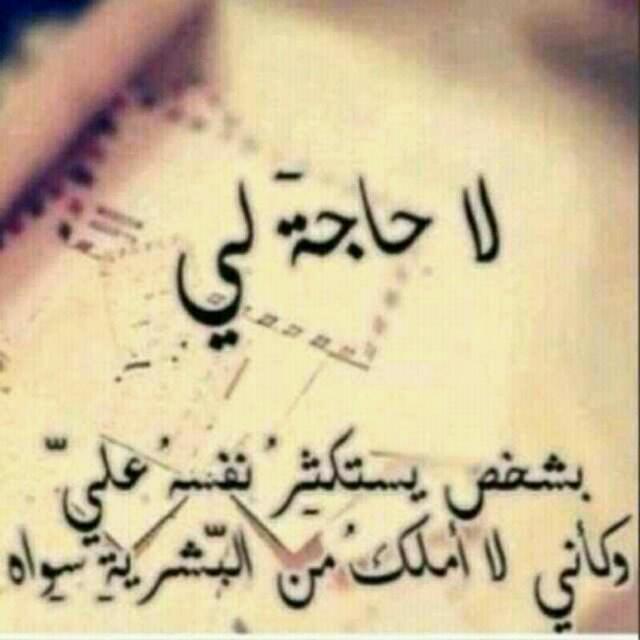 لا حاجةَ لي
بشخص يستكثِرُ نفسهُ عليّ
وكأني لا أملكُ من البّشريةِ سِواه